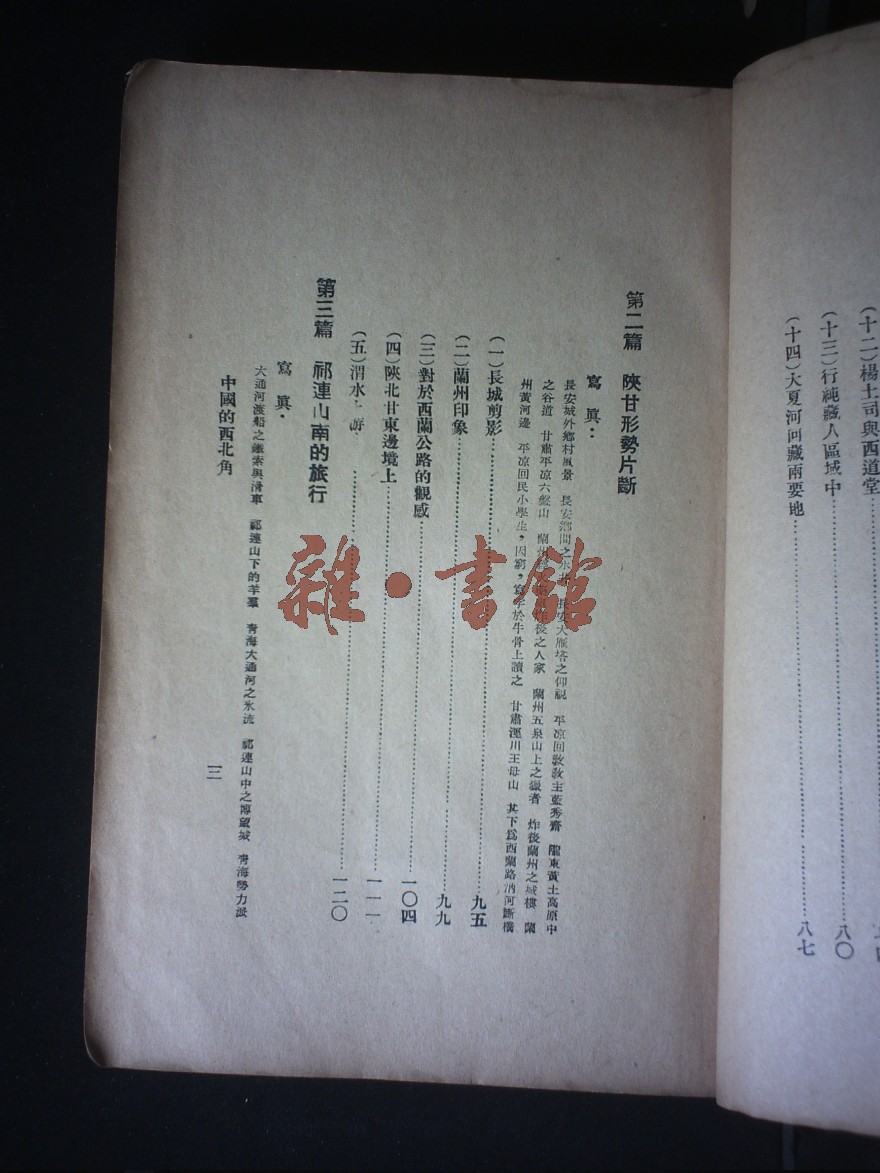 (十二)楊土司與西道堂
(十三)行純藏人區域中……八〇
(十四)大夏河回藏兩要地……八七
第二篇 陝甘形勢片斷
寫眞：
長安城外鄉村風景 長安鄉間之 長安大雁塔之仰視 平凉回敎敎主藍秀齊 隴東黃土高原中
之谷道 甘肅平凉六盤山 蘭州 炸後之人家 蘭州五泉山上之 者 炸後蘭州之城樓 蘭
州黃河邊 平凉回民小學生，因窮，寫字於牛骨上讀之 甘肅涇川王母山 其下爲西蘭路汭河斷橋
(一)長城剪影……九五
(二)蘭州印象……九九
(三)對於西蘭公路的觀感……一〇四
(四)陝北甘東邊境上……一一一
(五)渭水上游……一二〇
第三篇 祁連山南的旅行
寫眞：
大通河渡船之鐵索與滑車 祁連山下的羊羣 靑海大通河之氷流 祁連山中之博望城 靑海勢力派
中國的西北角
三
雜·書館